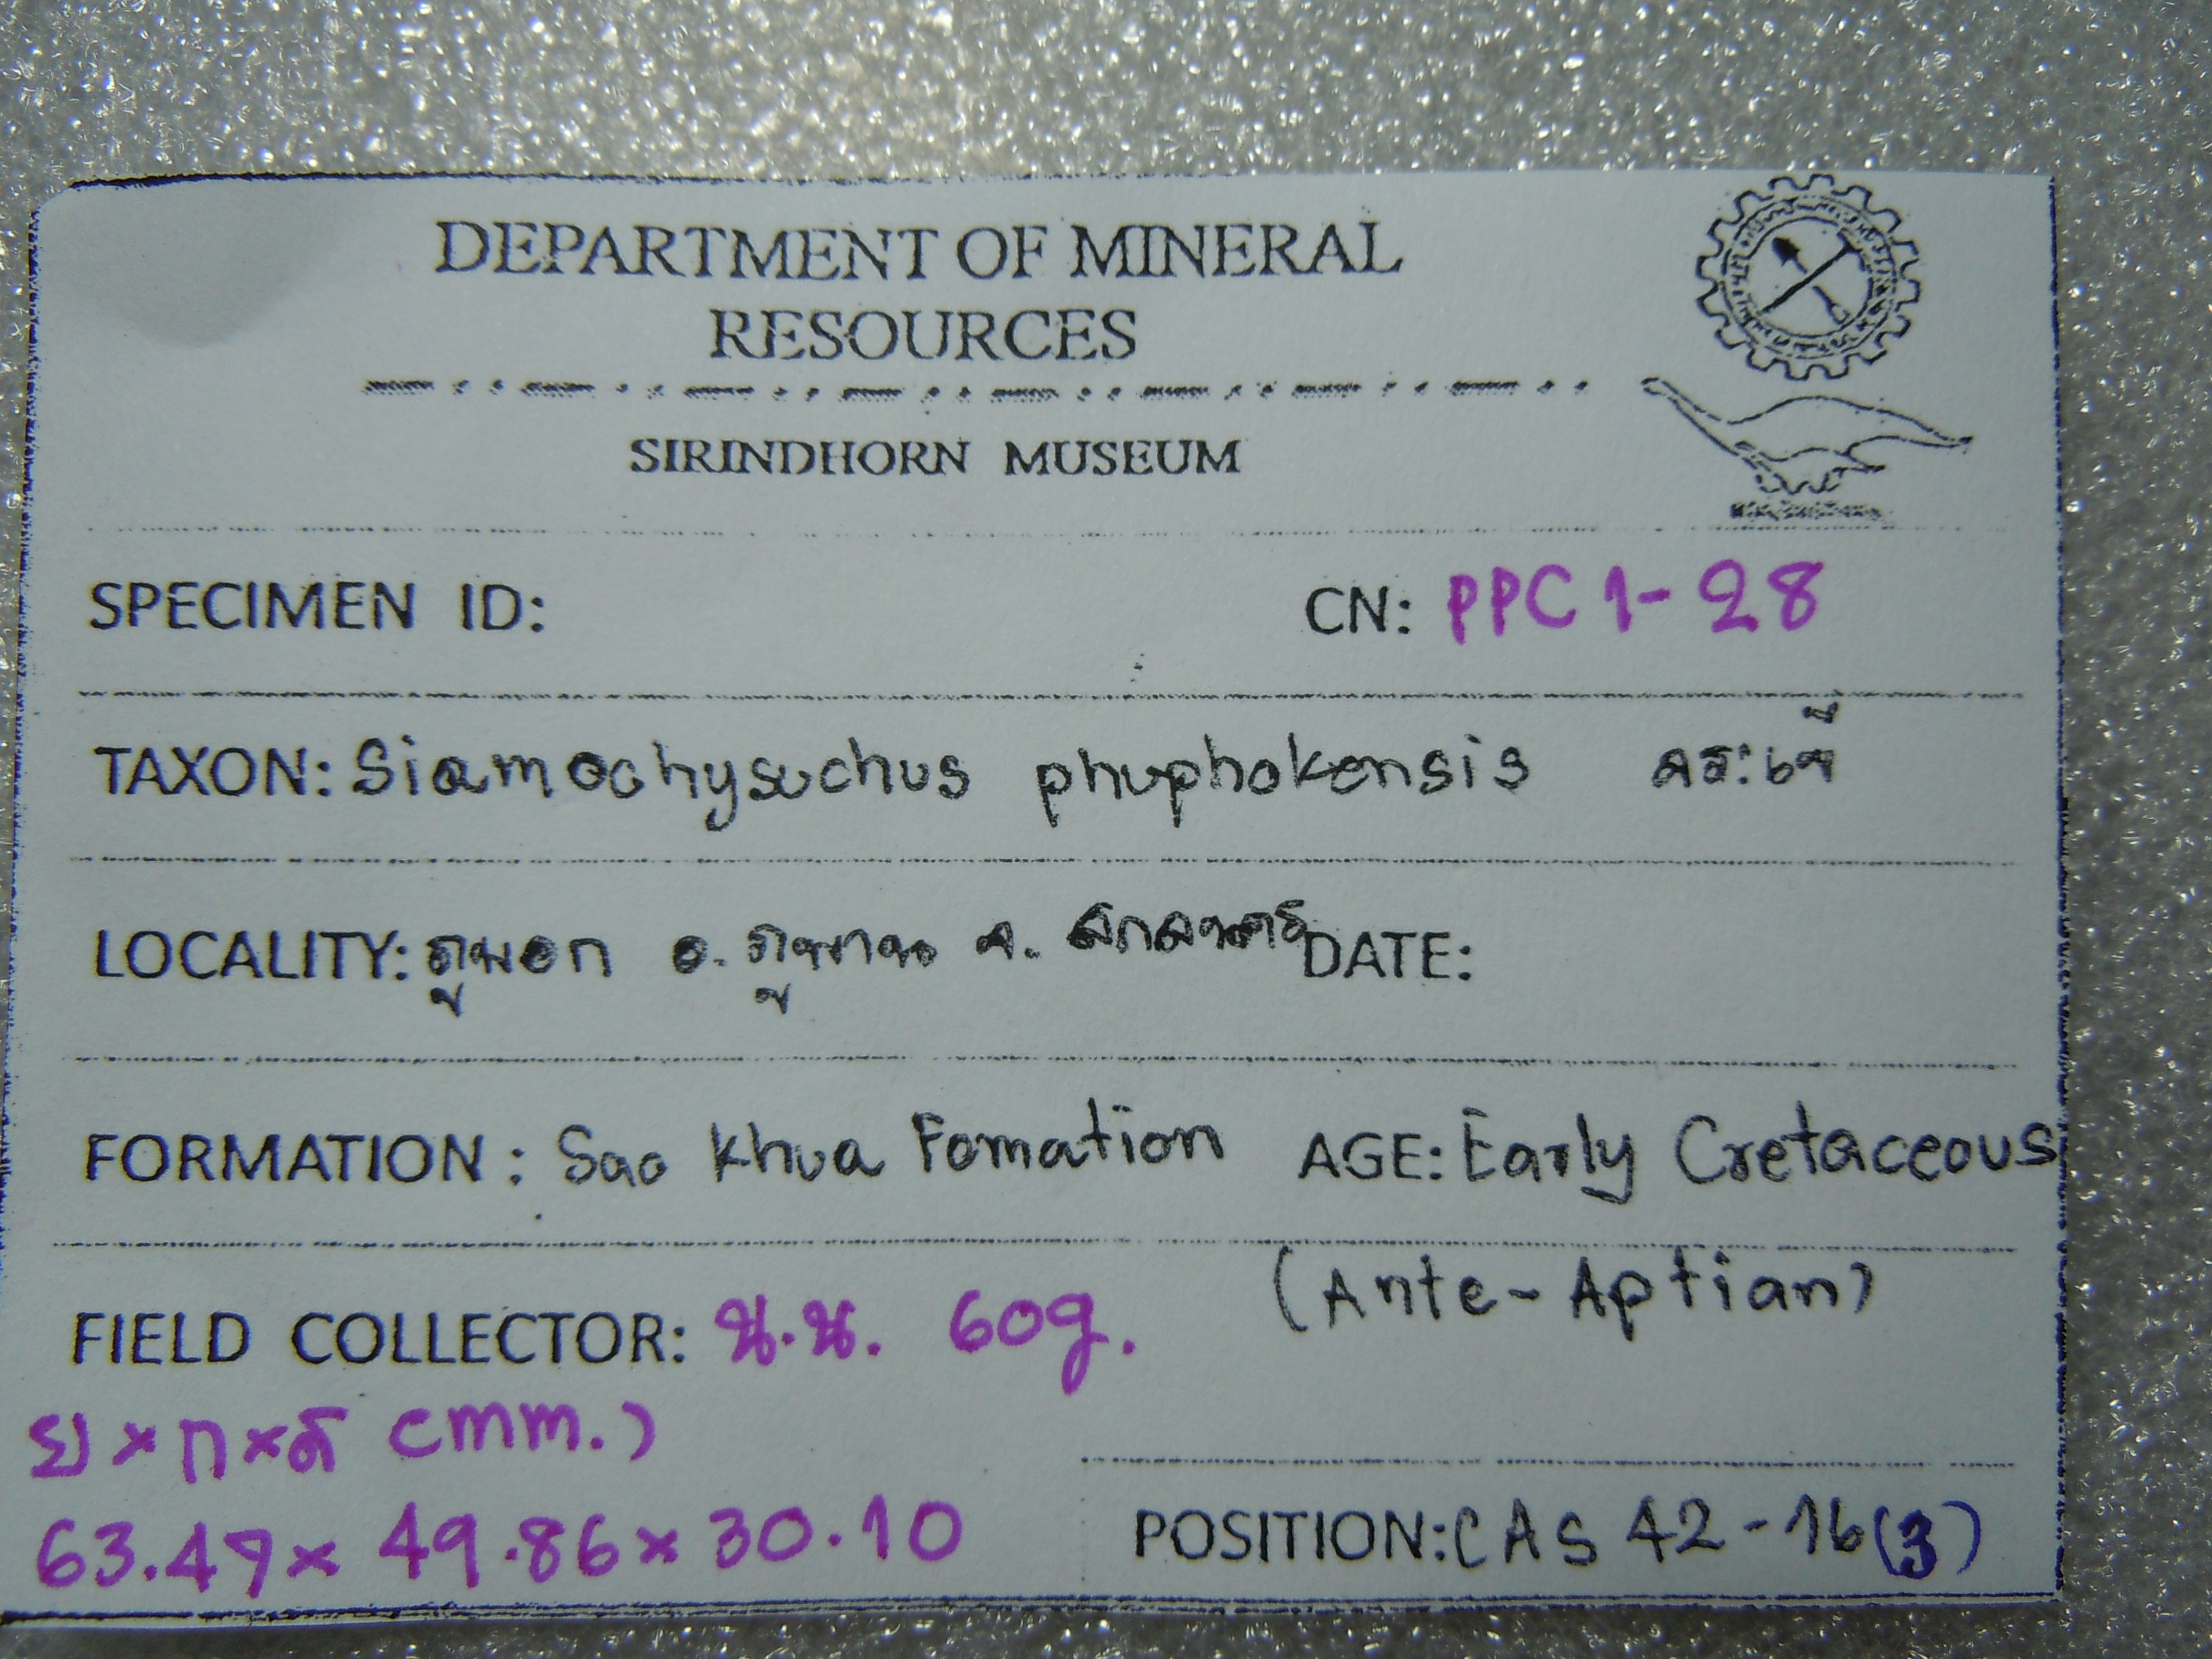 DEPARTMENT OF MINERAL
RESOURCES
SIRINDHORN MUSEUM
SPECIMEN ID: CN: PPC 1-28
TAXON: Siamochysuchus phuphokensis จระเข้
LOCALITY: ภูพอก อ. ภูพาน จ. สกลนคร DATE:
FORMATION: Sao Khua Fomation AGE: Early Cretaceous
(Ante-Aptian)
FIELD COLLECTOR: น.น. 60g.
ย × ก × ส (mm.)
63.47 × 49.86 × 30.10
POSITION: CAS 42-16(3)